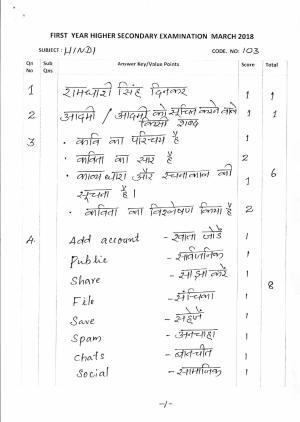 FIRST YEAR HIGHER SECONDARY EXAMINATION MARCH 2018
SUBJECT: HINDI CODE. NO: 103
Qn No Sub Qns Answer Key/Value Points Score Total
1 रामधारी सिंह दिनकर 1 1
2 आदमी / आदमी को सूचित करने वाले 1 1
शब्द
3 · कवि का परिचय है 1
· कविता का सार है 2
· काव्यधारा और रचनाकाल की
सूचना है। 1 6
· कविता का विश्लेषण किया है 2
4. Add account - खाता जोड़ें 1
Public - सार्वजनिक 1
Share - साझा करें 1
File - संचिका 1 8
Save - सहेजें 1
Spam - अनचाहा 1
Chats - बातचीत 1
Social - सामाजिक 1
-1-